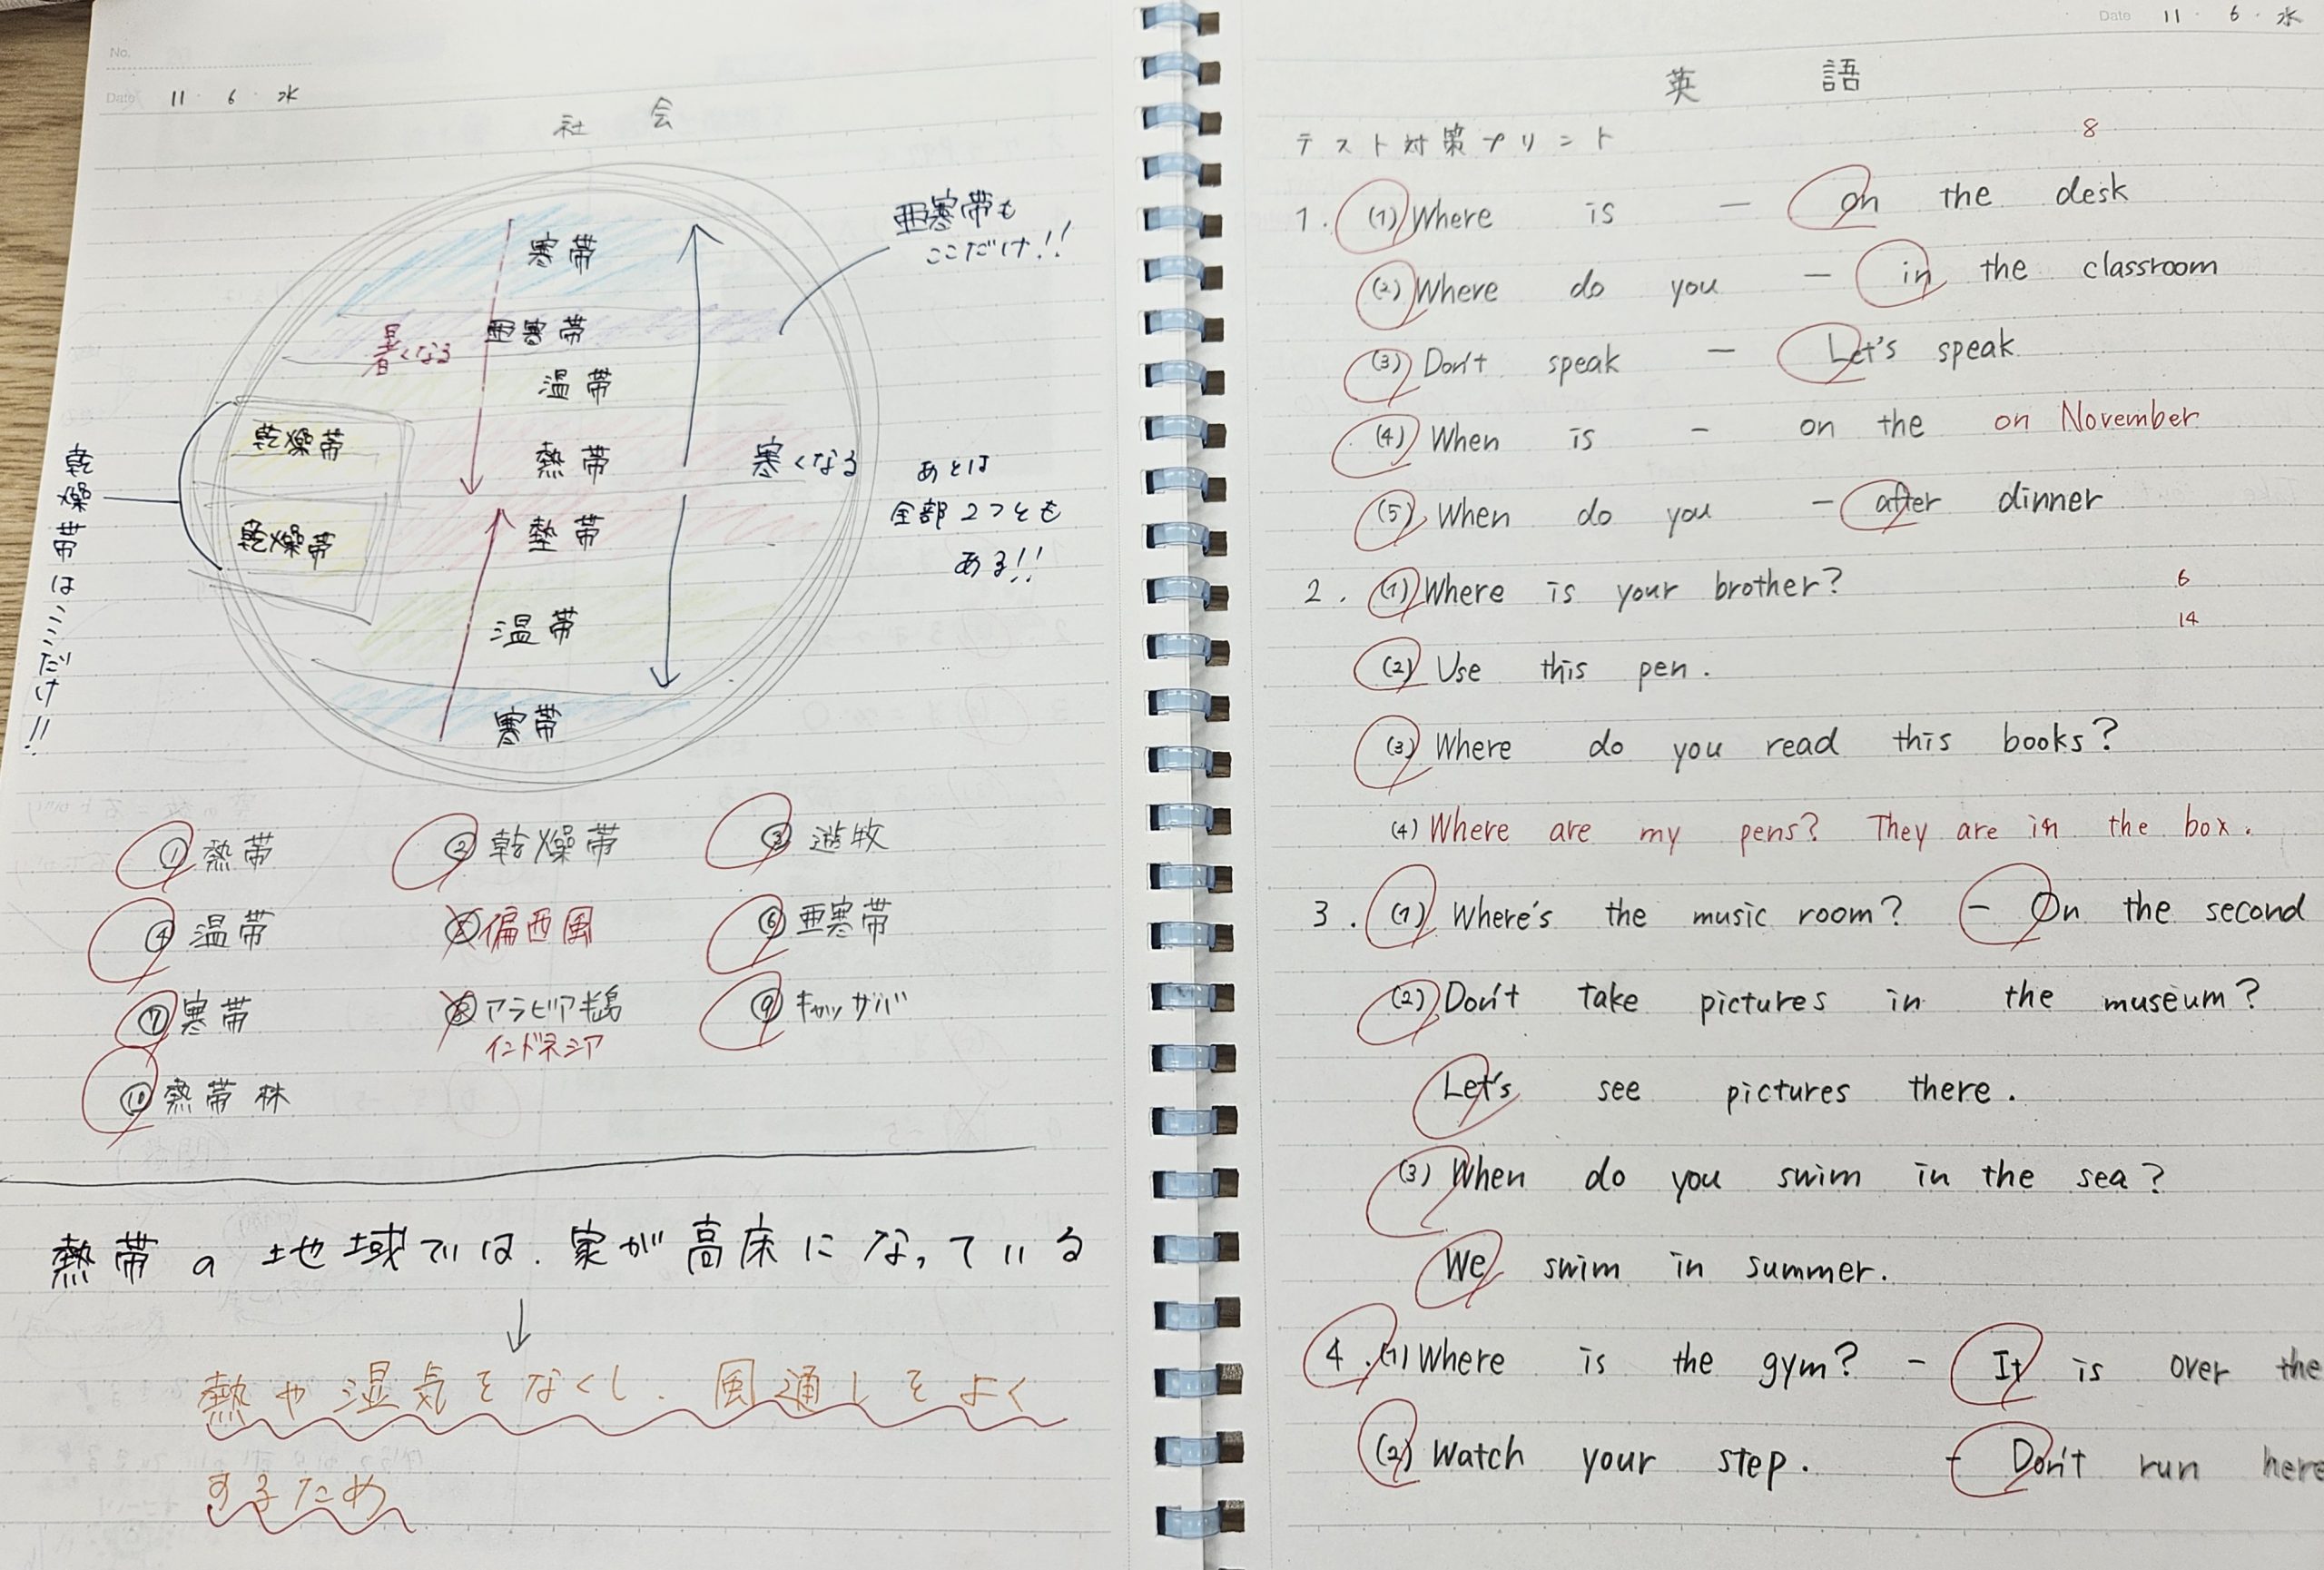 No.
Date 11 · 6 · 水
社 会
亜寒帯も
ここだけ!!
寒帯
亜寒帯
暑くなる
温帯
乾燥帯
熱帯
寒くなる
あとは
全部2つとも
ある!!
乾燥帯
熱帯
温帯
寒帯
乾燥帯はここだけ!!
① 熱帯 ② 乾燥帯 ③ 遊牧
④ 温帯 ⑤ 偏西風 ⑥ 亜寒帯
⑦ 寒帯 ⑧ アラビア半島 ⑨ キャッサバ
インドネシア
⑩ 熱帯林
熱帯の地域では、家が高床になっている
↓
熱や湿気をなくし、風通しをよく
するため
Date 11 · 6 · 水
英 語
テスト対策プリント
8
1. (1) Where is — on the desk
(2) Where do you — in the classroom
(3) Don't speak — Let's speak
(4) When is - on the on November
(5) When do you - after dinner
2. (1) Where is your brother?
6
14
(2) Use this pen.
(3) Where do you read this books?
(4) Where are my pens? They are in the box.
3. (1) Where's the music room? - On the second
(2) Don't take pictures in the museum?
Let's see pictures there.
(3) When do you swim in the sea?
We swim in summer.
4. (1) Where is the gym? - It is over the
(2) Watch your step. - Don't run here